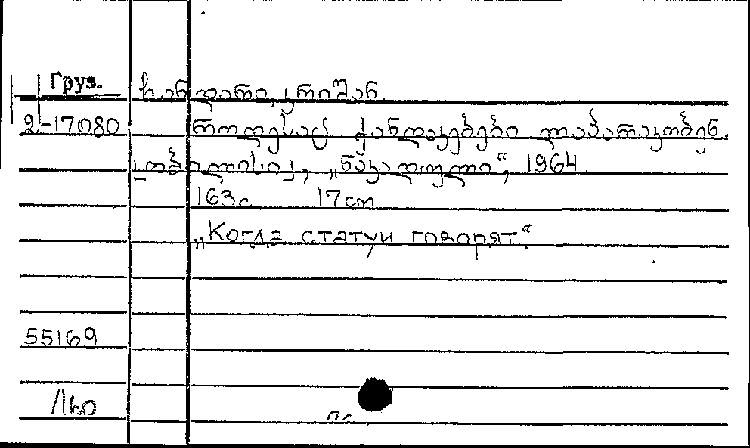 Груз.
ჩანდარი, კრიშან
2-17080 როდესაც ქანდაკებები ლაპარაკობენ.
თბილისი, „ნაკადული“, 1964
163с 17 cm
„Когда статуи говорят“
55169